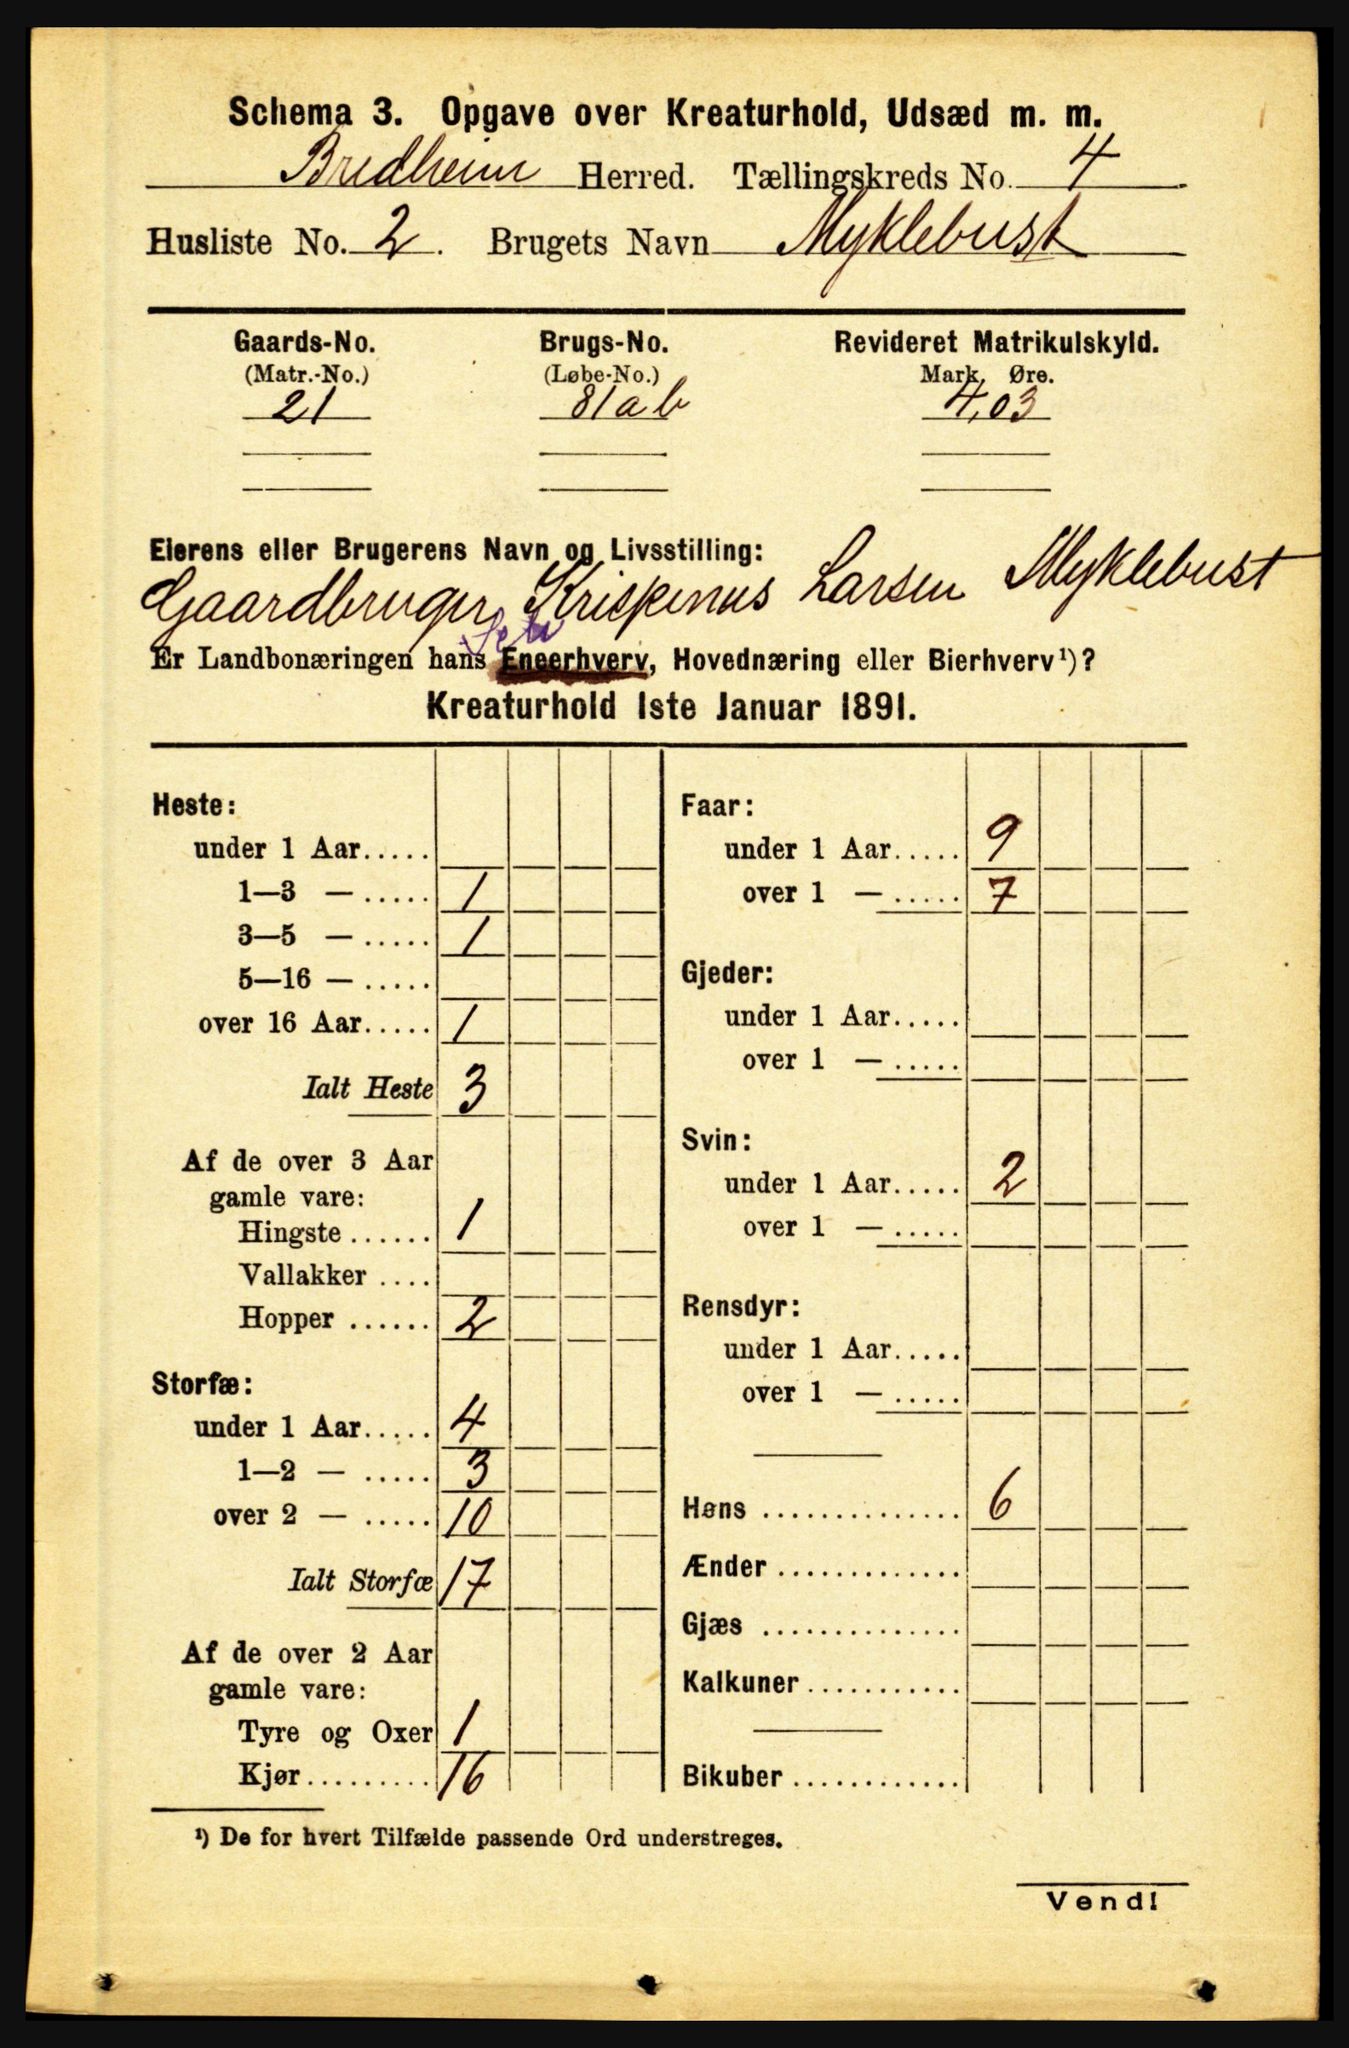 Schema 3. Opgave over Kreaturhold, Udsæd m. m.
Bredheim Herred. Tællingskreds No. 4
Husliste No. 2. Brugets Navn Myklebust
Gaards-No. Brugs-No. Revideret Matrikulskyld.
(Matr.-No.) (Løbe-No.) Mark. Øre.
21 81ab 4,03
Eierens eller Brugerens Navn og Livsstilling:
Gaardbruger Krispinus Larsen Myklebust
Selv
Er Landbonæringen hans Eneerhverv, Hovednæring eller Bierhverv¹)?
Kreaturhold 1ste Januar 1891.
Heste:
under 1 Aar.....
1—3 — ..... 1
3—5 — ..... 1
5—16 — .....
over 16 Aar..... 1
Ialt Heste 3
Af de over 3 Aar
gamle vare:
Hingste...... 1
Vallakker ....
Hopper ...... 2
Storfæ:
under 1 Aar..... 4
1—2 — ..... 3
over 2 — ..... 10
Ialt Storfæ 17
Af de over 2 Aar
gamle vare:
Tyre og Oxer 1
Kjør......... 16
Faar:
under 1 Aar..... 9
over 1 — ..... 7
Gjeder:
under 1 Aar.....
over 1 — .....
Svin:
under 1 Aar..... 2
over 1 — .....
Rensdyr:
under 1 Aar.....
over 1 — .....
Høns ............... 6
Ænder .............
Gjæs ..............
Kalkuner...........
Bikuber.............
¹) De for hvert Tilfælde passende Ord understreges.
Vend!